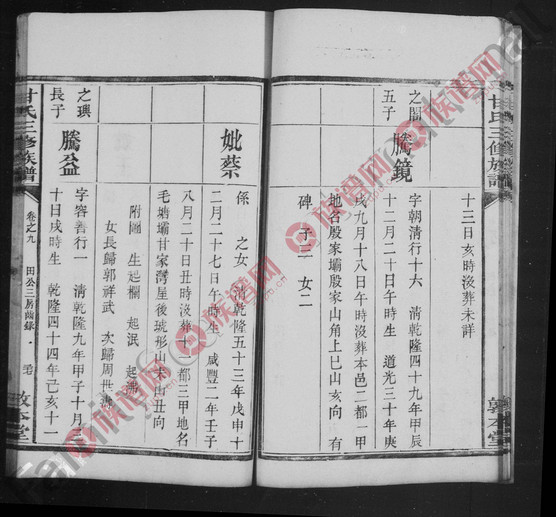 甘氏三修族譜
敦本堂
十三日亥時沒葬未詳
之閣
五子
騰鏡
字朝清行十六 清乾隆四十九年甲辰
十二月二十日午時生 道光三十年庚
戌九月十八日午時沒葬本邑二都一甲
地名殷家壩殷家山角上巳山亥向 有
碑 子二 女二
妣蔡
係 之女 清乾隆五十三年戊申十
二月二十七日午時生 咸豐二年壬子
八月二十日丑時沒葬十一都三甲地名
毛塘壩甘家灣屋後琥形山未山丑向
附圖 生起棚 起泯 起沸
女長歸郭祥武 次歸周世
之璵
長子
騰益
字容善行一 清乾隆九年甲子十月二
十日戌時生 乾隆四十四年己亥十二
甘氏三修族譜
卷之九
田公三房齒錄
敦本堂
族谱网